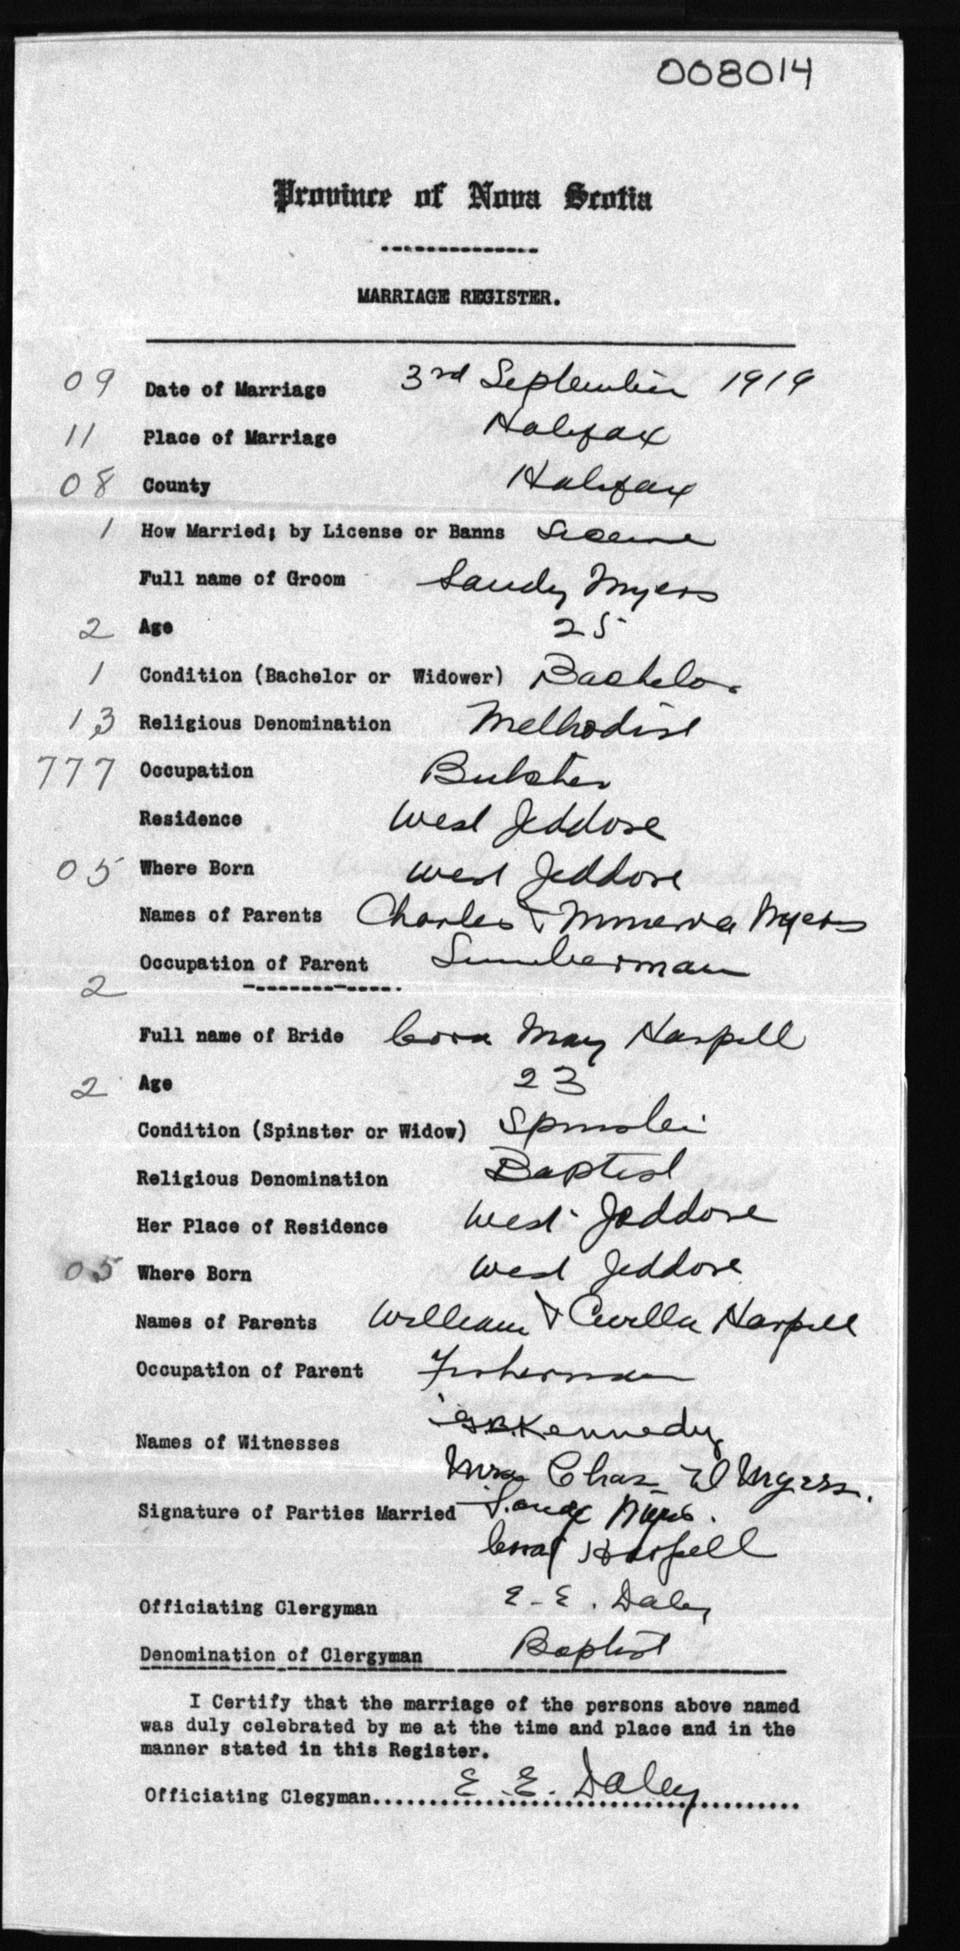 008014
Province of Nova Scotia
MARRIAGE REGISTER.
09 Date of Marriage 3rd September 1919
11 Place of Marriage Halifax
08 County Halifax
1 How Married; by License or Banns License
Full name of Groom Sandy Myers
2 Age 25
1 Condition (Bachelor or Widower) Bachelor
13 Religious Denomination Methodist
777 Occupation Butcher
Residence West Jeddore
05 Where Born West Jeddore
Names of Parents Charles & Minerva Myers
Occupation of Parent Lumberman
2
Full name of Bride Cora May Harpell
2 Age 23
Condition (Spinster or Widow) Spinster
Religious Denomination Baptist
Her Place of Residence West Jeddore
05 Where Born West Jeddore
Names of Parents William & Harpell
Occupation of Parent Fisherman
Names of Witnesses Kennedy
Mrs Chas W Myers.
Signature of Parties Married Myers.
Cora Harpell
Officiating Clergyman E. E. Daley
Denomination of Clergyman Baptist
I Certify that the marriage of the persons above named
was duly celebrated by me at the time and place and in the
manner stated in this Register.
Officiating Clegyman E. E. Daley